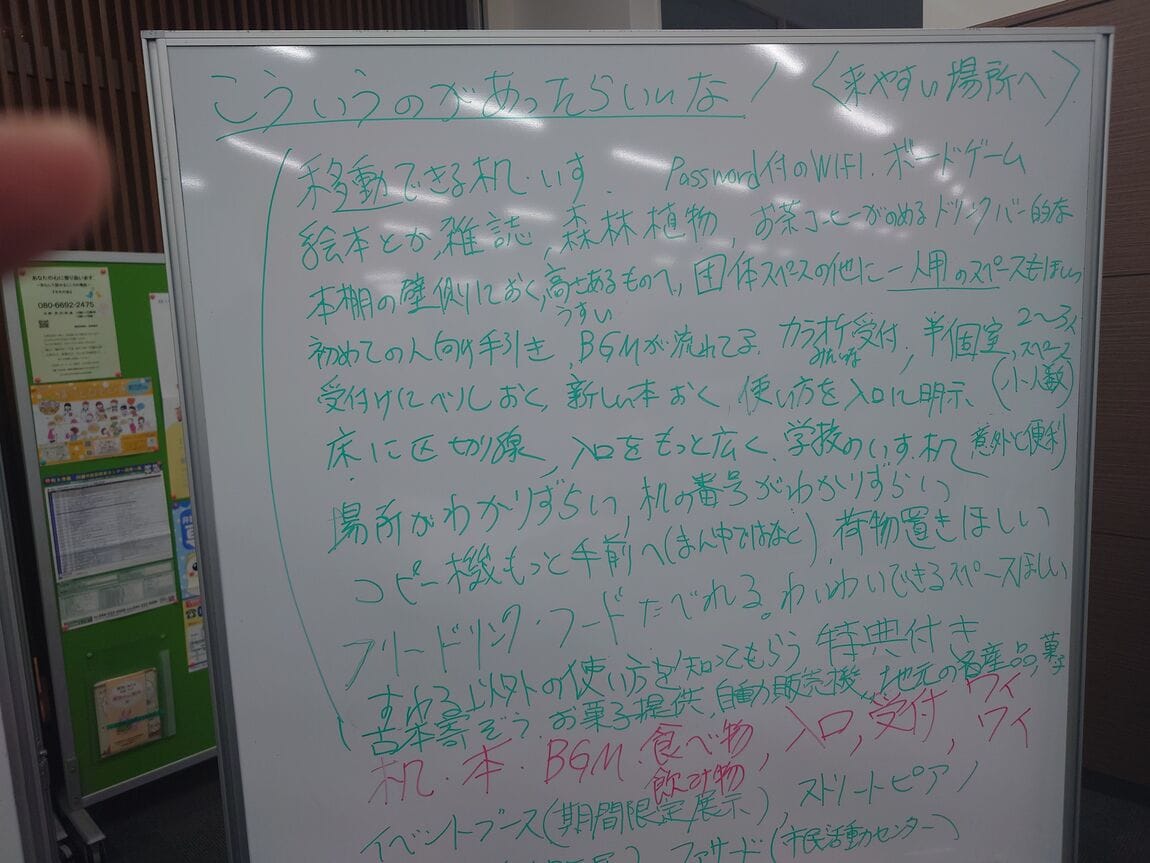 こういうのがあったらいいな！〈来やすい場所へ〉
移動できる机・いす. Password付のWIFI. ボードゲーム
絵本とか,雑誌,森林植物,お茶コーヒーがのめるドリンクバー的な
本棚の壁側におく,高さあるものへ,団体スペースの他に一人用のスペースもほしい
うすい
初めての人向け手引き,BGMが流れてる.カラオケ受付,半個室,2〜3人スペース
みたいな
受付けにベルおく,新しい本おく,使い方を入口に明示、(小人数)
床に区切線,入口をもっと広く.学校のいす.机 意外と便利
場所がわかりずらい,机の番号がわかりずらい
コピー機もっと手前へ(まん中ではなく),荷物置きほしい
フリードリンク・フードたべれる。わいわいできるスペースほしい
すわる以外の使い方を知ってもらう 特典付き
古本寄ぞう.お菓子提供,自動販売機,地元の名産品,菓子
机・本・BGM.食べ物,入口,受付,ワイワイ
飲み物
イベントブース(期間限定展示),ストリートピアノ
ファサード(市民活動センター)
あなたの心に寄り添います
080-6692-2475